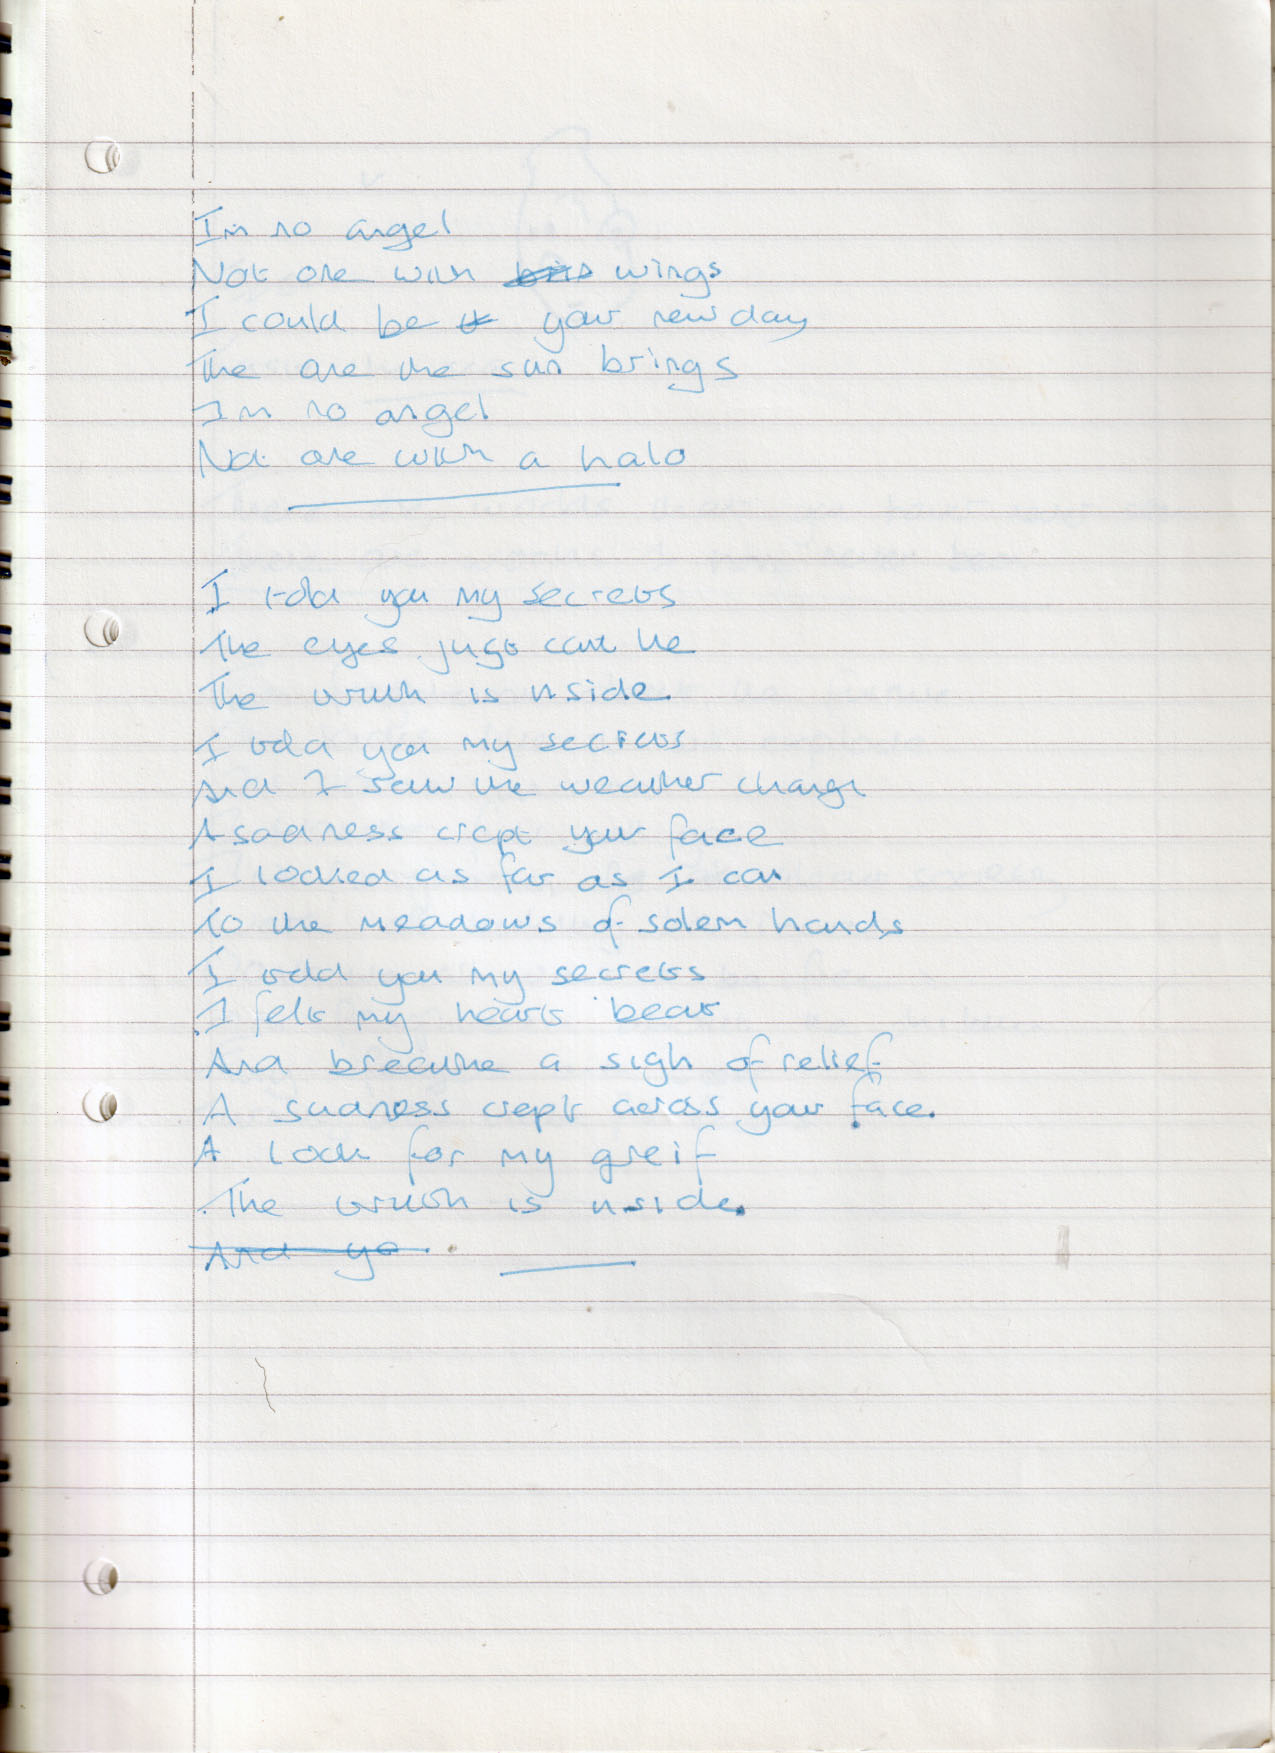 Im no angel
Not one with wings
I could be your new day
The one the sun brings
Im no angel
Not one with a halo
I told you my secrets
The eyes just cant lie
The truth is inside.
I told you my secrets
And I saw the weather change
A sadness crept your face
I looked as far as I can
To the meadows of solem hands
I told you my secrets
I felt my heart beat
And breathe a sigh of relief
A sadness crept across your face.
A look for my greif
The truth is inside.
And yo